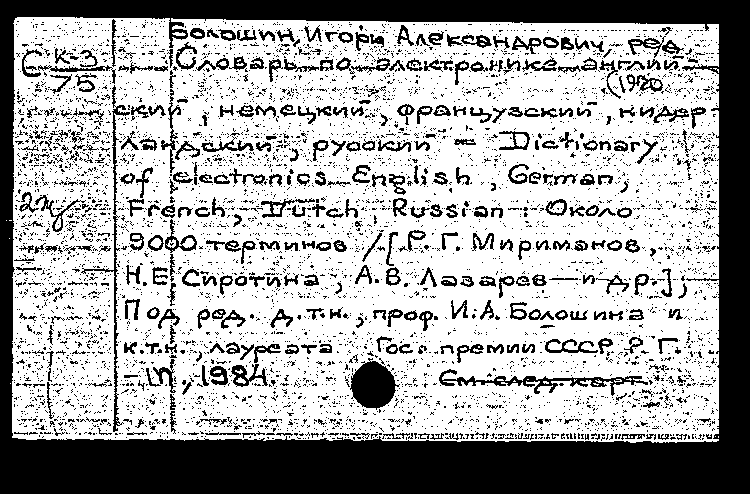 Болошин, Игорь Александрович, ред.
С К-3
75
Словарь по электронике англий-
(1920
ский, немецкий, французский, нидер-
ландский, русский = Dictionary
of electronics English, German,
2 
French, Dutch, Russian : Около
9000 терминов /[Р. Г. Мириманов,
Н.Е. Сиротина, А.В. Лазарев и др.];
Под ред. д.т.н., проф. И.А. Болошина и
к.т.н., лауреата Гос. премии СССР Р. Г.
1984. См. след. карт.